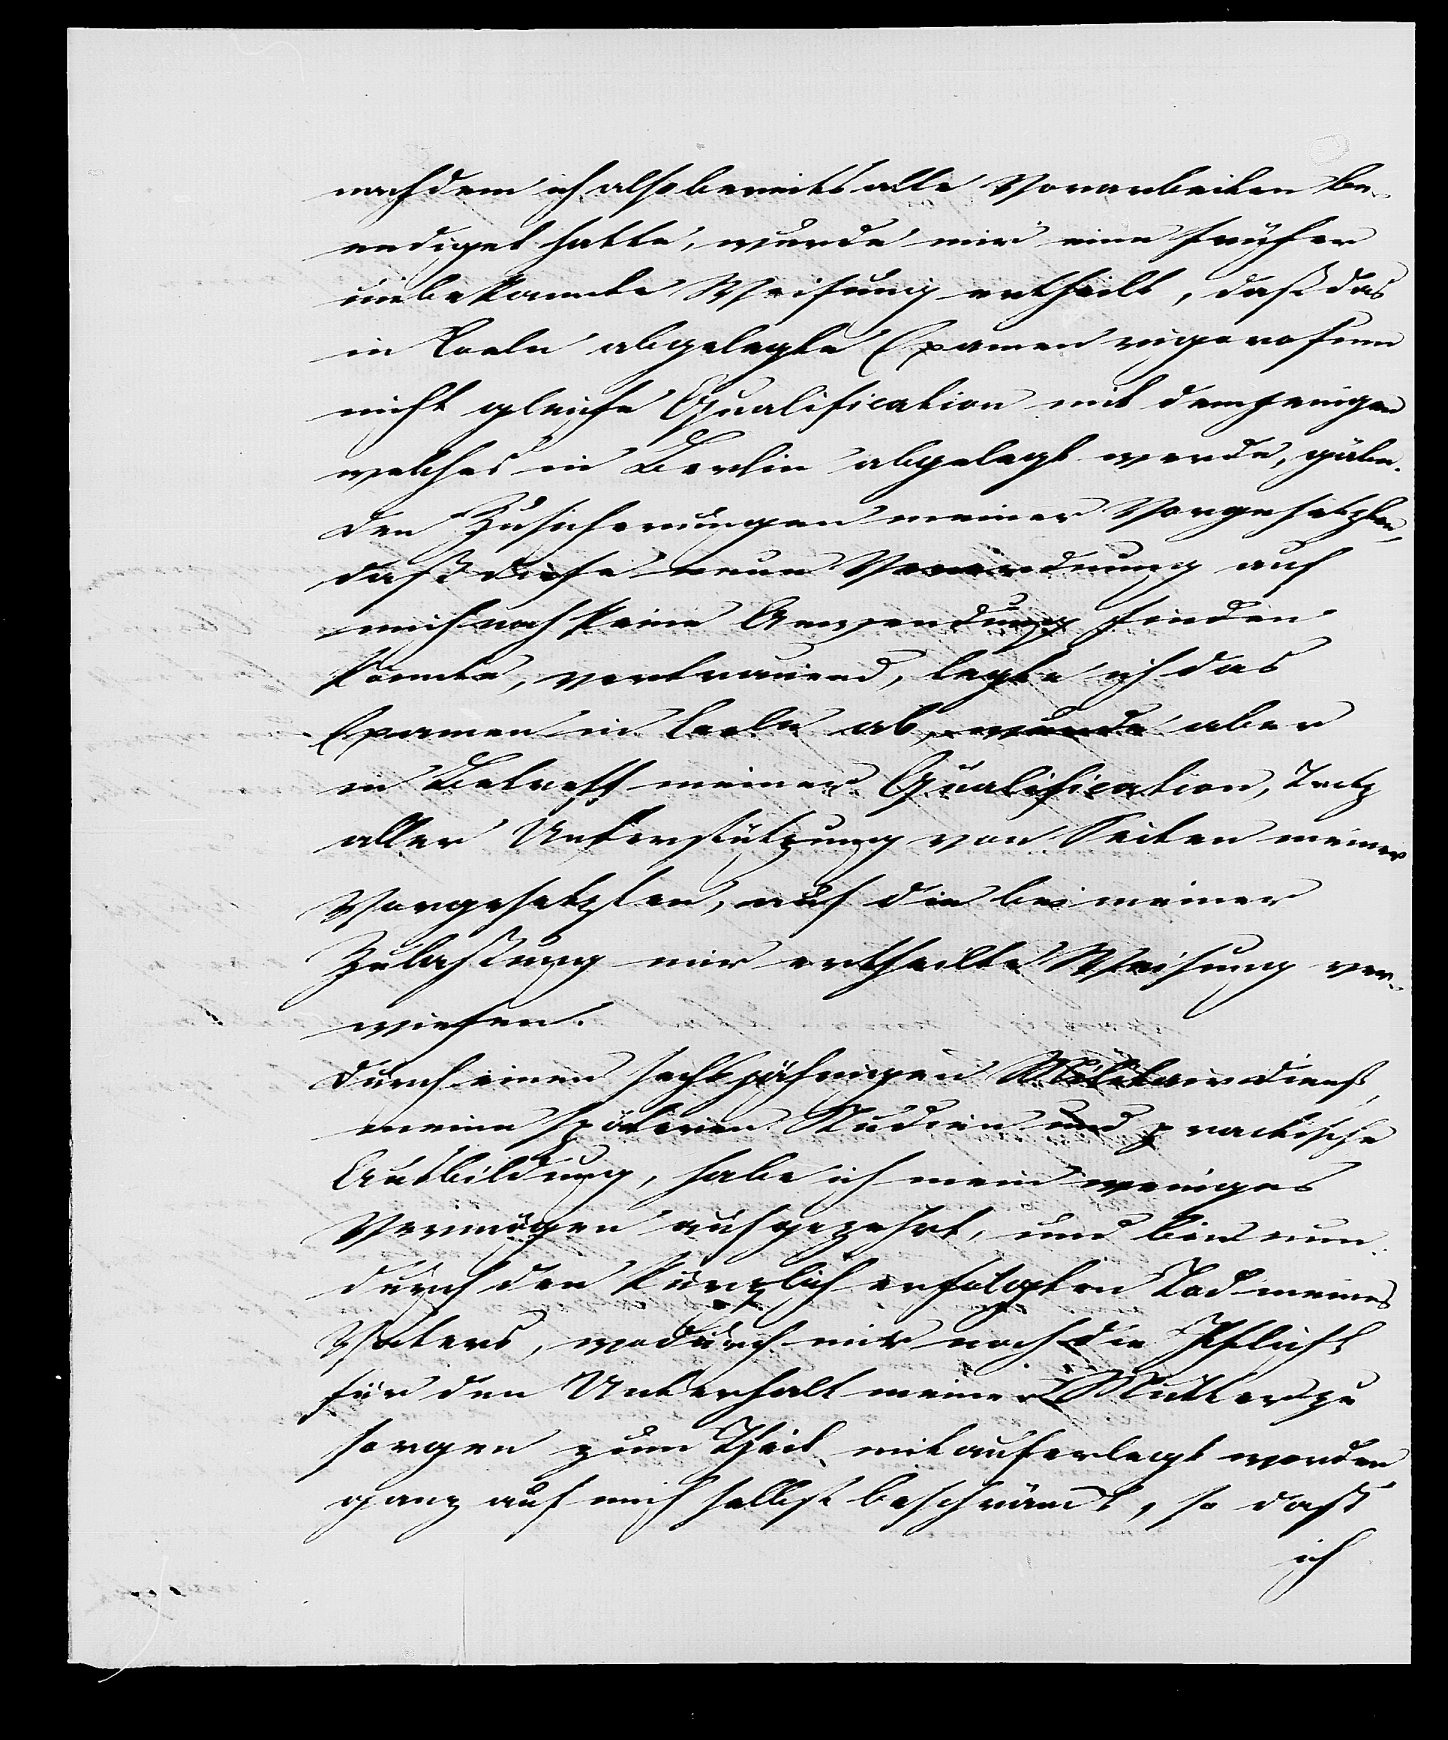 nachdem ich also bereits alle Vorarbeiten be-
endiget hatte, wurde mir eine früher
unbekannte Weisung ertheilt, daß das
in Coeln abgelegte Examen rigorosum
nicht gleiche Qualification mit demjenigen
welches in Berlin abgelegt werde, gäbe.
Den Zusicherungen meiner Vorgesetzten,
daß diese neue Verordnung auf
mich noch keine Anwendung finden
könnte, vertrauend, legte ich das
Examen in Coeln ab, wurde aber
in Betreff meiner Qualification, Trotz
aller Unterstützung von Seiten meiner
Vorgesetzten, auf die bei meiner
Zulassung mir ertheilte Weisung ver-
wiesen.
Durch einen sechsjährigen Militairdienst,
meine späteren Studien und practische
Ausbildung, habe ich mein weniges
Vermögen aufgezehrt, und bin nun
durch den kürzlich erfolgten Tod meines
Vaters, wodurch mir noch die Pflicht
für den Unterhalt meiner Mutter zu
sorgen zum Theil mit auferlegt worden
ganz auf mich selbst beschränkt, so daß
ich